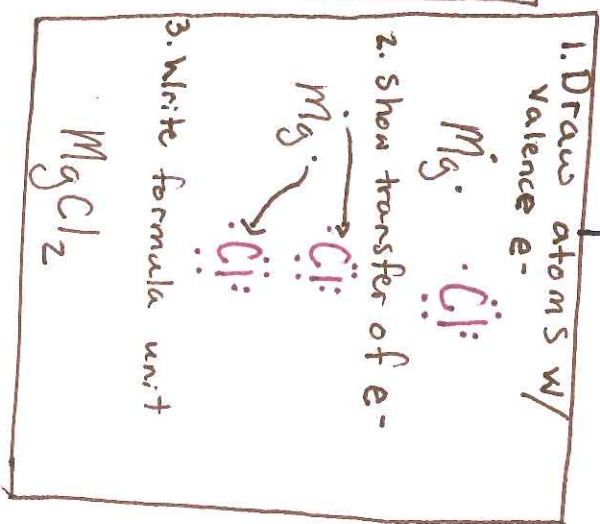 1. Draw atoms w/
valence e-
Mg Cl
2. Show transfer of e-
Mg Cl
Cl
3. Write formula unit
MgCl2